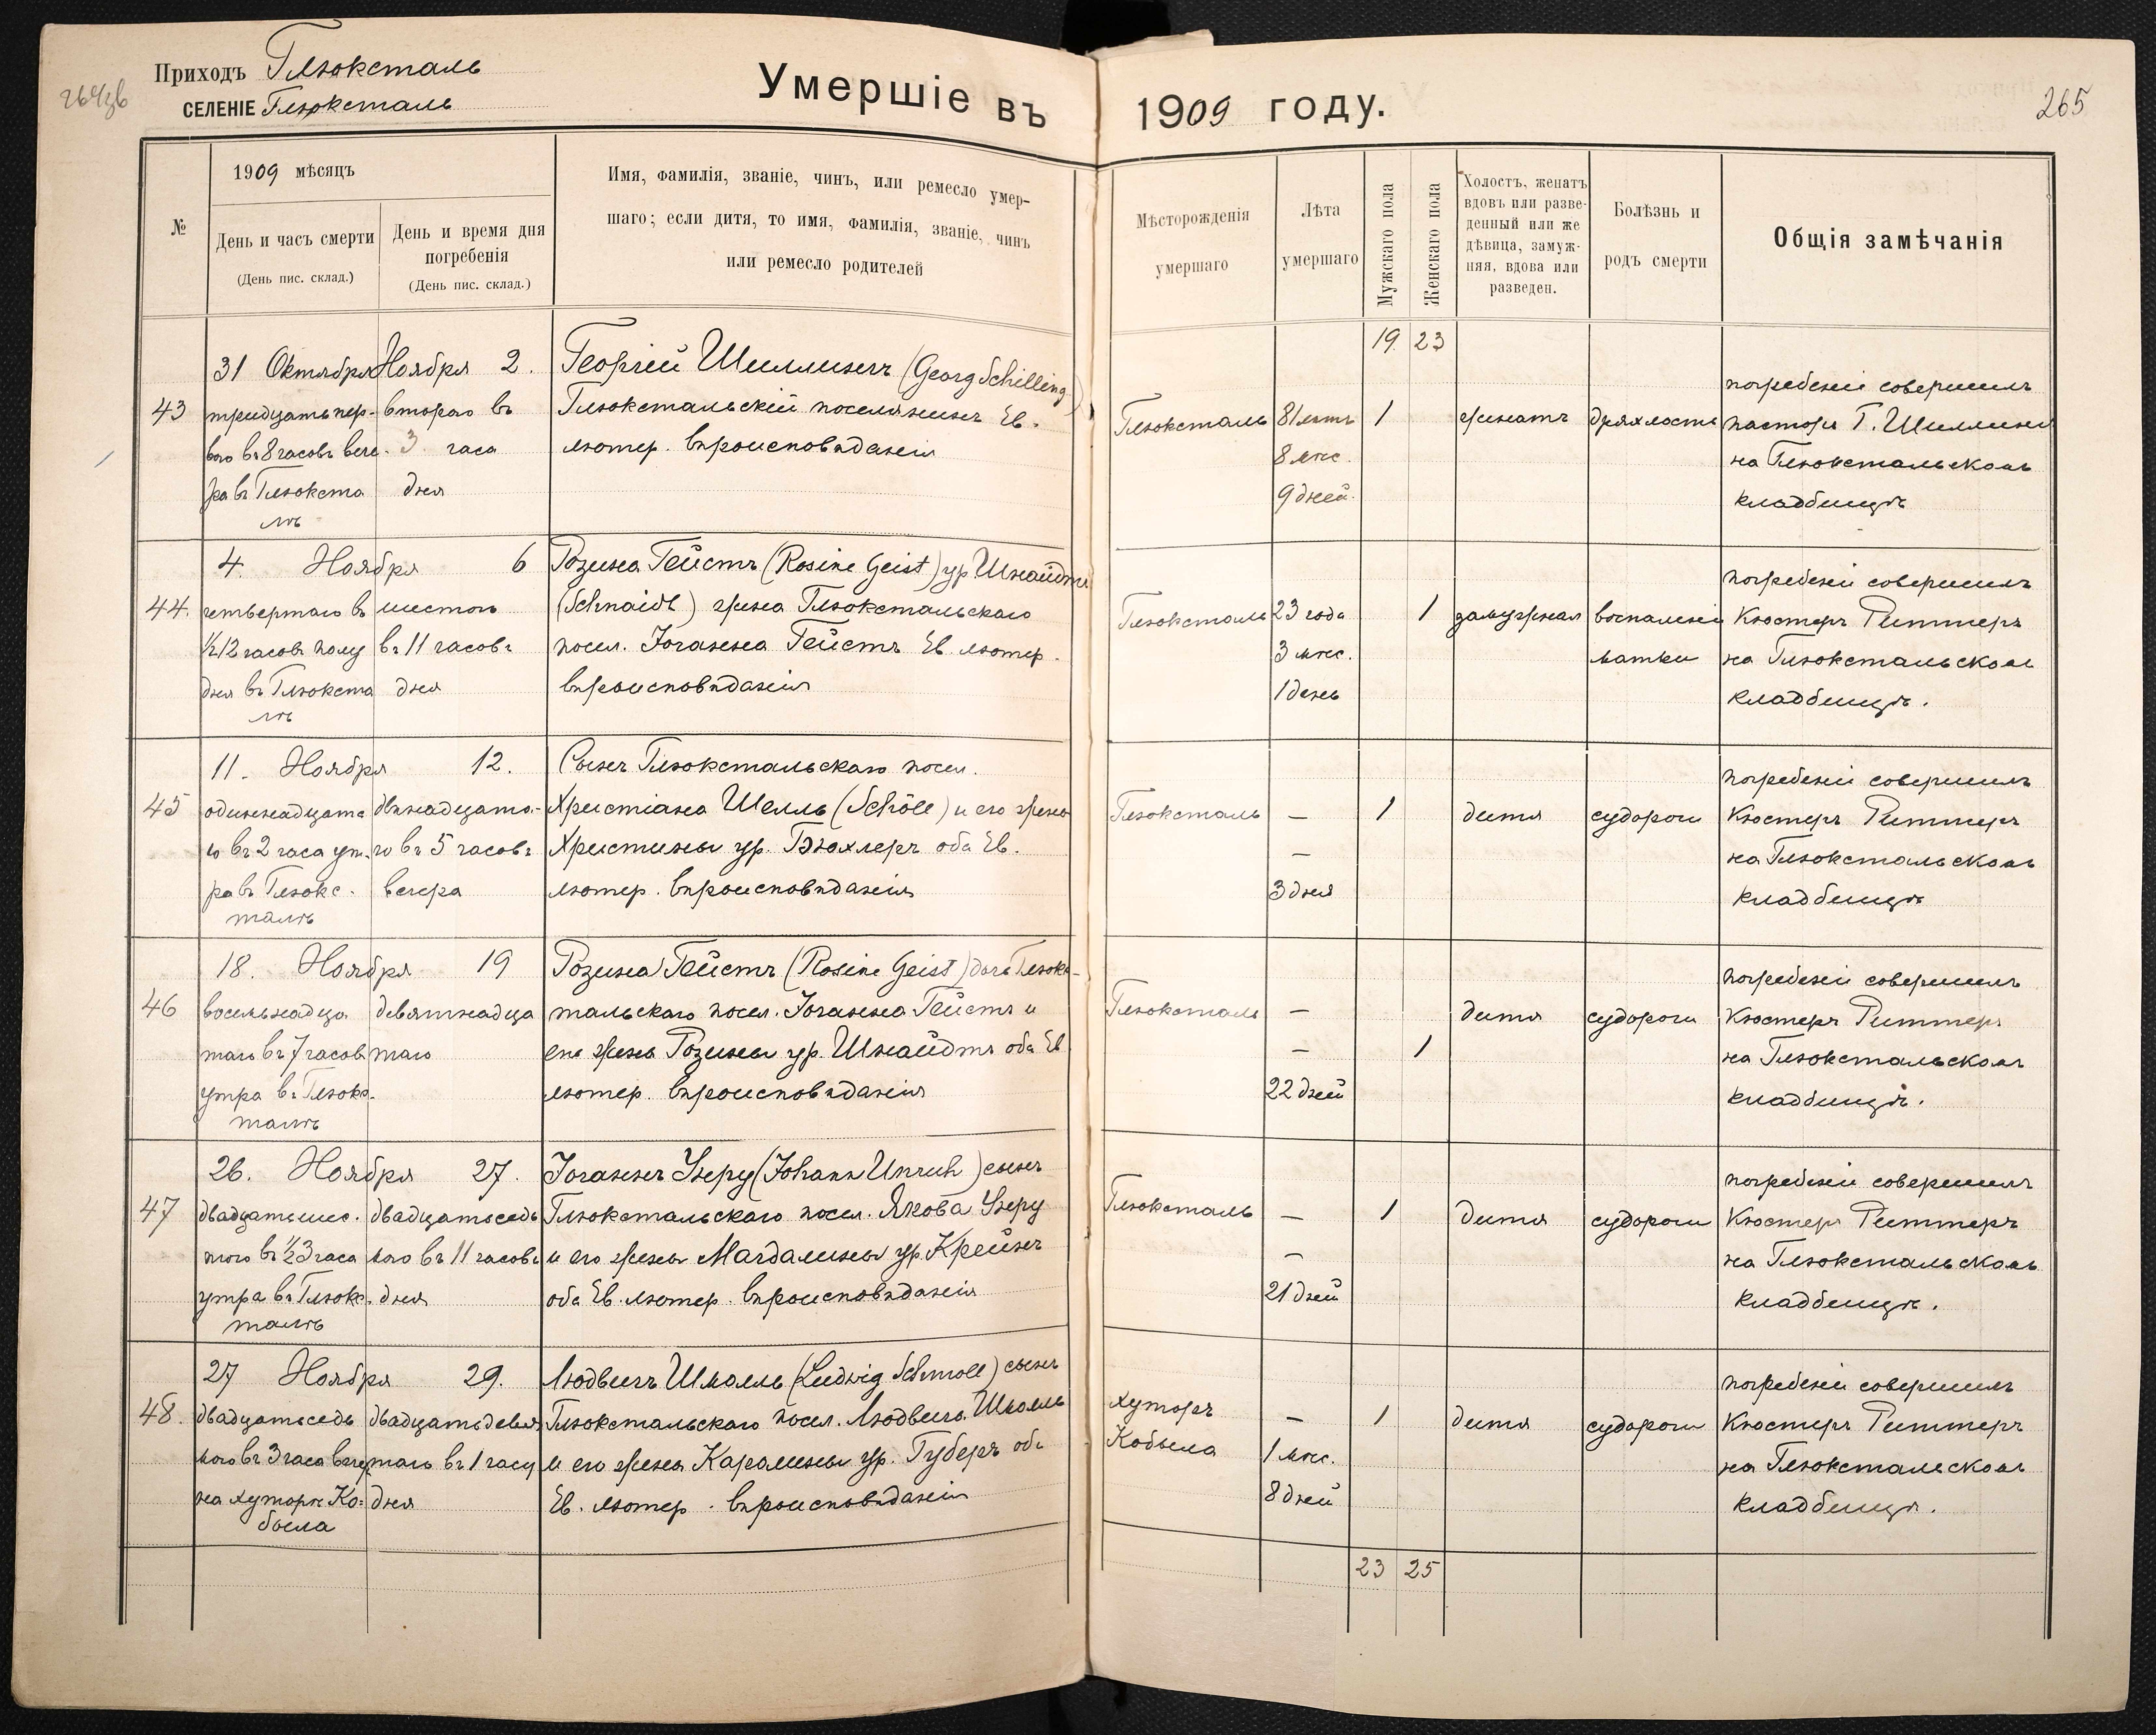 Приходъ Глюксталь
СЕЛЕНІЕ Глюксталь
Умершіе въ 1909 году.
265
№
1909 мѣсяцъ
День и часъ смерти
(День пис. склад.)
День и время дня
погребенія
(День пис. склад.)
Имя, фамилія, званіе, чинъ, или ремесло умер-
шаго; если дитя, то имя, фамилія, званіе, чинъ
или ремесло родителей
Мѣсторожденія
умершаго
Лѣта
умершаго
Мужскаго пола
Женскаго пола
Холостъ, женатъ
вдовъ или разве-
денный или же
дѣвица, замуж-
няя, вдова или
разведен.
Болѣзнь и
родъ смерти
Общія замѣчанія
19 23
43
31 Октября
тридцать пер-
ваго въ 8 часовъ вече-
ра въ Глюкста
лѣ
Ноября 2.
втораго въ
3 часа
дня
Георгій Шиллингъ (Georg Schilling)
Глюкстальскій поселянинъ Ев.
лютер. вѣроисповѣданія
Глюксталь
81 лѣтъ
8 мѣс.
9 дней.
1
женатъ
дряхлость
погребеніе совершилъ
пасторъ Г. Шиллинг
на Глюкстальскомъ
кладбищѣ
44.
4. Ноября
четвертаго въ
½12 часовъ полу
дня въ Глюкста
лѣ
6
шестого
въ 11 часовъ
дня
Розина Гейстъ (Rosine Geist) ур Шнайдтъ
(Schnaidt) жена Глюкстальскаго
посел. Іоганна Гейстъ Ев. лютер.
вѣроисповѣданія
Глюксталь
23 года
3 мѣс.
1 день
1
замужняя
воспаленіе
матки
погребеніе совершилъ
Кюстеръ Риттеръ
на Глюкстальском
кладбищѣ.
45
11. Ноября
одиннадцата
го въ 2 часа ут-
ра въ Глюкс-
талѣ
12.
двѣнадцата-
го въ 5 часовъ
вечера
Сынъ Глюкстальскаго посел.
Христіана Шелль (Schöll) и его жены
Христины ур. Бюхлеръ оба Ев.
лютер. вѣроисповѣданія
Глюксталь
—
—
3 дня
1
дитя
судороги
погребеніе совершилъ
Кюстеръ Риттеръ
на Глюкстальскомъ
кладбищѣ
46
18. Ноября
восемнадца
таго въ 7 часовъ
утра въ Глюкс-
талѣ
19
девятнадца
таго
Розина Гейстъ (Rosine Geist) дочь Глюкс-
тальскаго посел. Іоганна Гейстъ и
его жены Розины ур. Шнайдтъ оба Ев
лютер. вѣроисповѣданія
Глюксталь
—
—
22 дней
1
дитя
судороги
погребеніе совершилъ
Кюстеръ Риттеръ
на Глюкстальскомъ
кладбищѣ.
47
26. Ноября
двадцать шес-
того въ ½3 часа
утра въ Глюкс-
талѣ
27.
двадцать седь
маго въ 11 часовъ
дня
Іоганнъ Унру (Johann Unruh) сынъ
Глюкстальскаго посел. Якова Унру
и его жены Магдалины ур. Крейнъ
оба Ев. лютер. вѣроисповѣданія
Глюксталь
—
—
21 дней
1
дитя
судороги
погребеніе совершилъ
Кюстеръ Риттеръ
на Глюкстальскомъ
кладбищѣ.
48.
27 Ноября
двадцать седь
маго въ 3 часа вечер
на хуторѣ Ко-
была
29.
двадцать девя
таго въ 1 часу
дня
Людвигъ Шмолль (Ludwig Schmoll) сынъ
Глюкстальскаго посел. Людвига Шмолль
и его жены Каролины ур. Губеръ оба
Ев. лютер. вѣроисповѣданія
хуторъ
Кобыла
—
1 мѣс.
8 дней
1
дитя
судороги
погребеніе совершилъ
Кюстеръ Риттеръ
на Глюкстальскомъ
кладбищѣ.
23 25